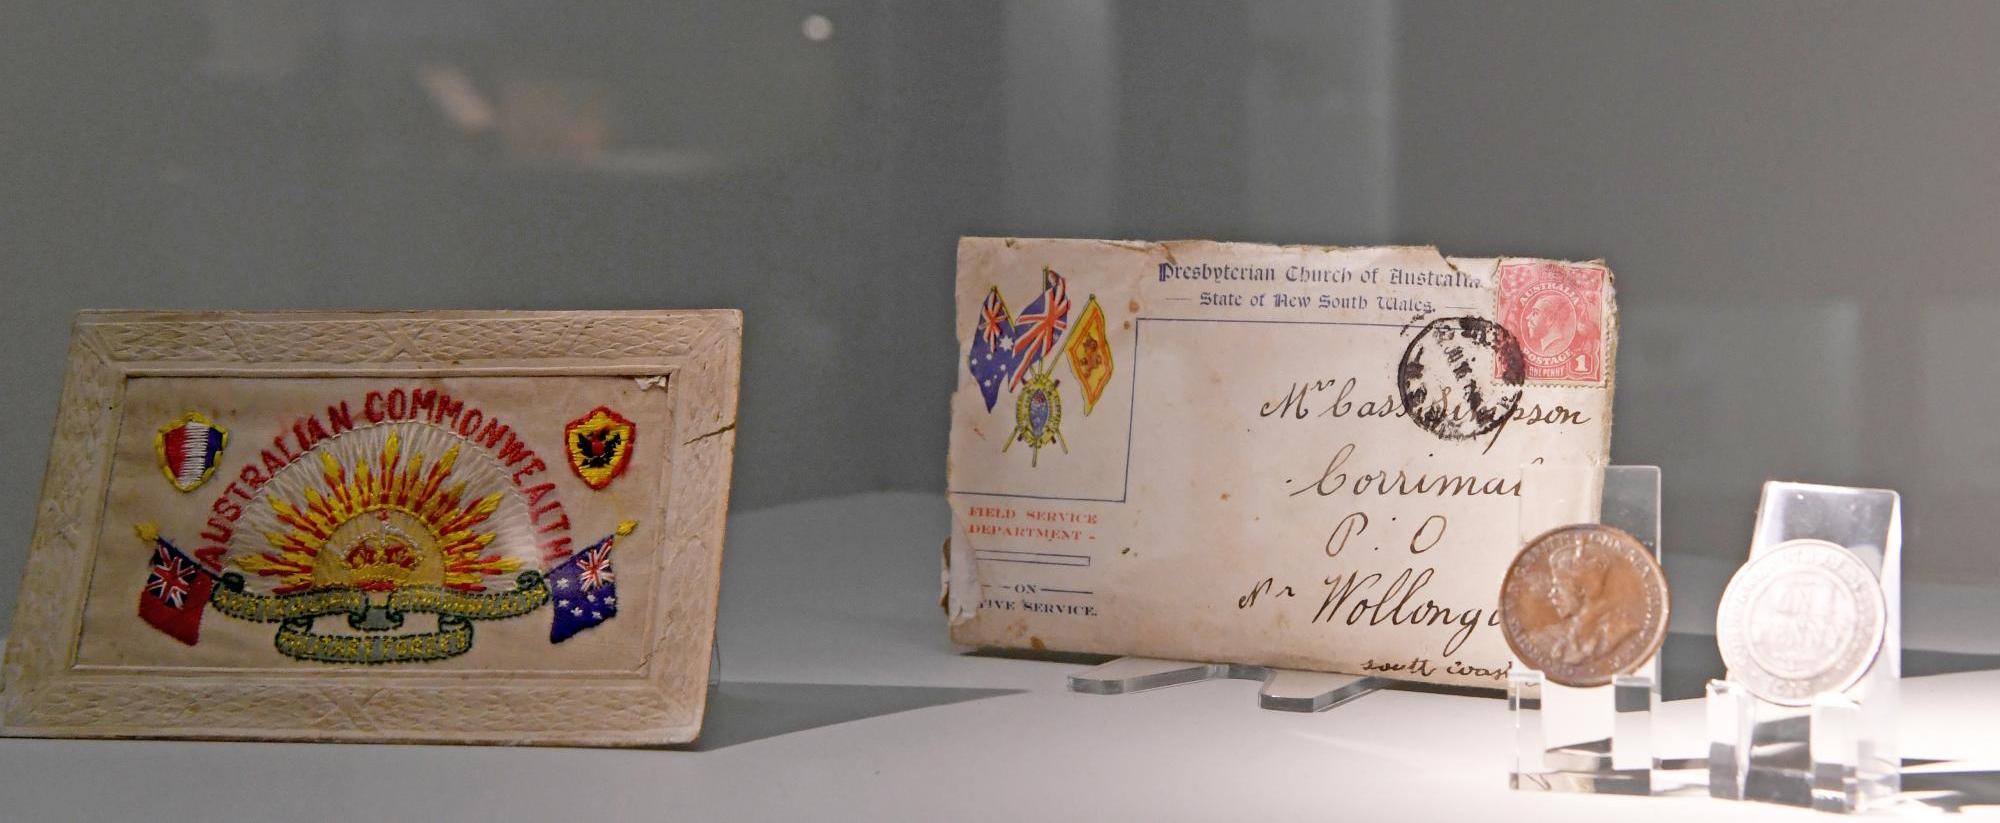 AUSTRALIAN COMMONWEALTH
AUSTRALIAN COMMONWEALTH
MILITARY FORCES
Presbyterian Church of Australia
State of New South Wales.
AUSTRALIA
POSTAGE
ONE PENNY
1
Mrs Cass Simpson
Corrimal
P.O
Nr Wollong
south coast
FIELD SERVICE
DEPARTMENT -
ON
TIVE SERVICE.